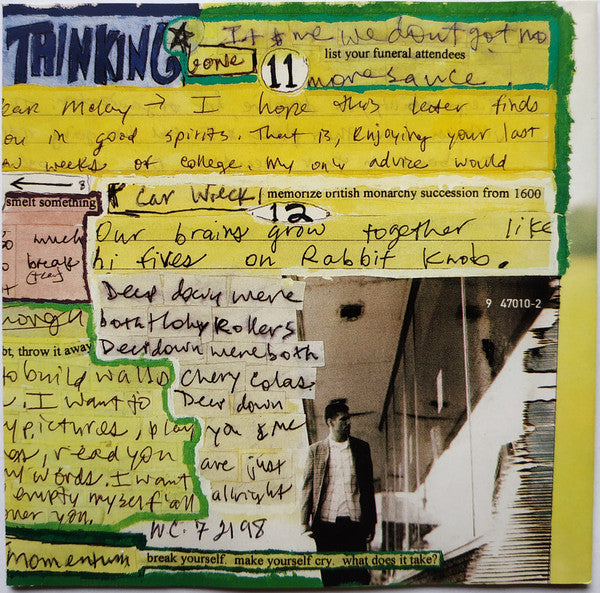 THINKING
gone
It & me we dont got no
list your funeral attendees
11
more sauce
ear McCoy → I hope this letter finds
ou in good spirits. That is, Enjoying your last
w weeks of college. My only advice would
smelt something
Car Wreck
memorize british monarchy succession from 1600
12
Our brains grow together like
hi fives on Rabbit Knob.
much
break
(free)
nough
bt, throw it away
to build walls
. I want to
y pictures, play
os, read you
words. I want
empty myself all
over you.
Deep down were
both Holy Rollers
Deep down were both
Chery Colas.
Deep down
you & me
are just
allright
N.C. 7 21 98
9 47010-2
momentum
break yourself. make yourself cry. what does it take?